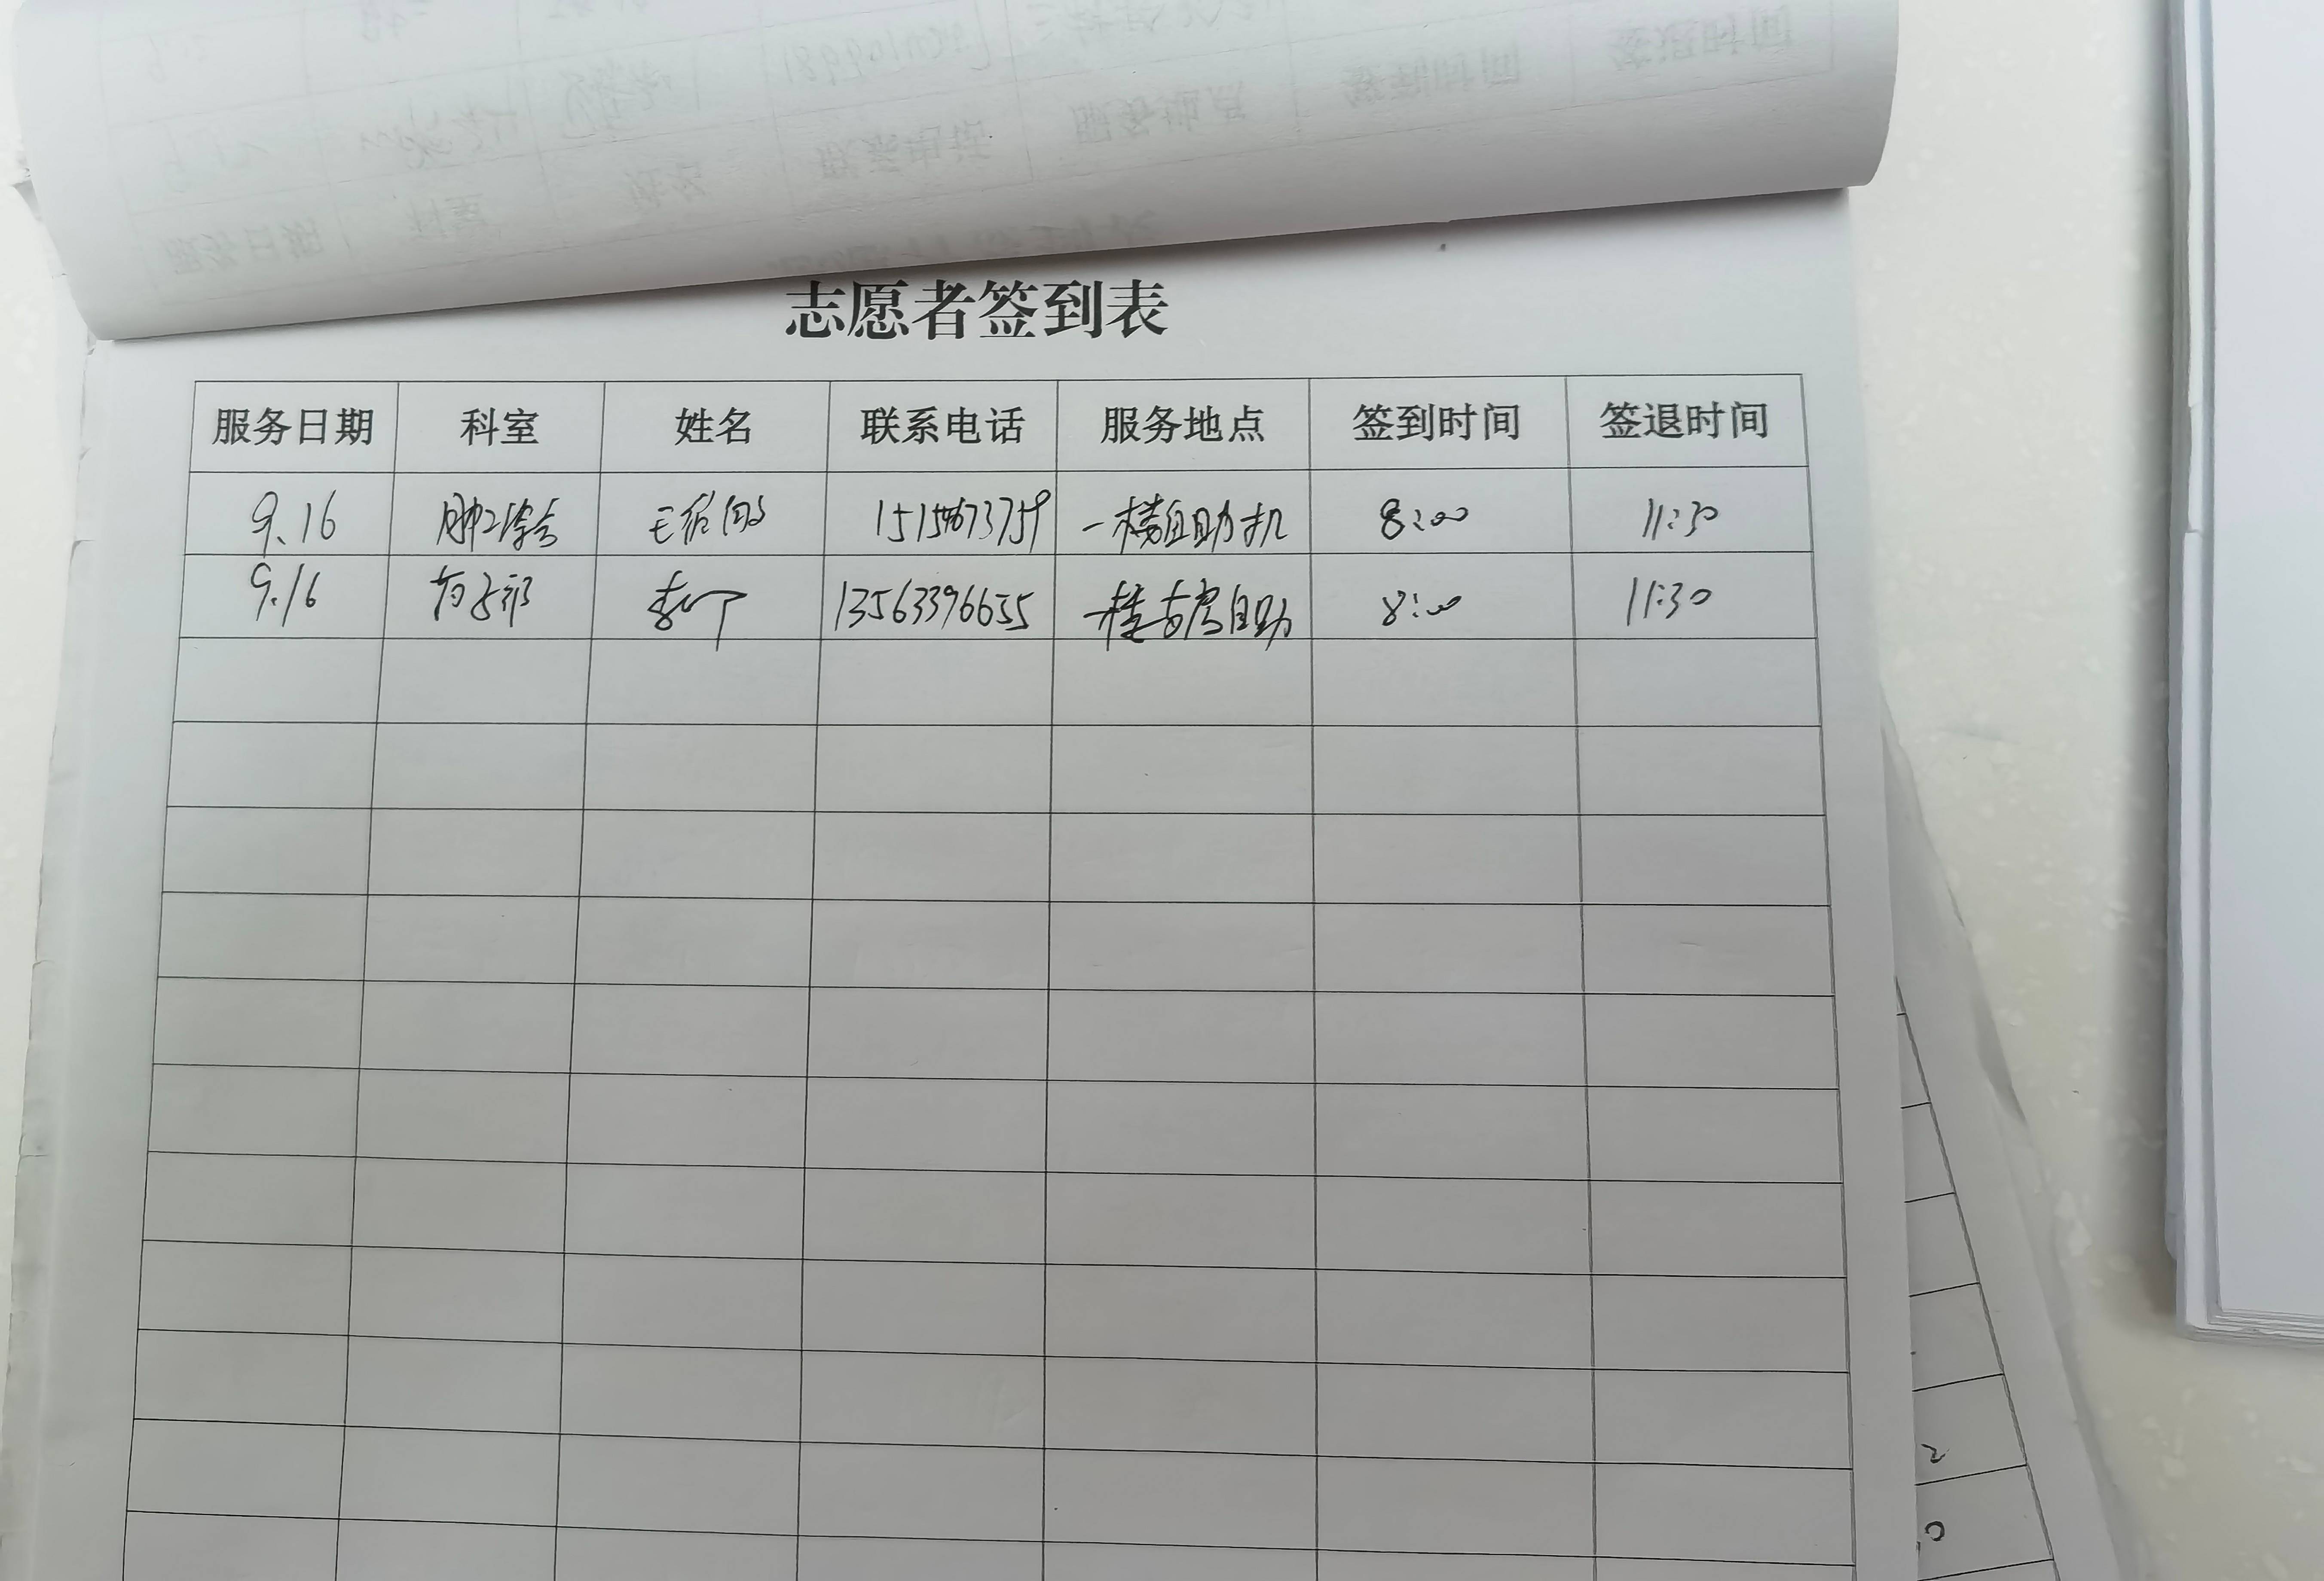 志愿者签到表
服务日期 科室 姓名 联系电话 服务地点 签到时间 签退时间
9.16 肿2综合 15154673759 一楼自助机 8:00 11:30
9.16 药学部 李丁 13563396655 一楼药房自助 8:00 11:30
2
0